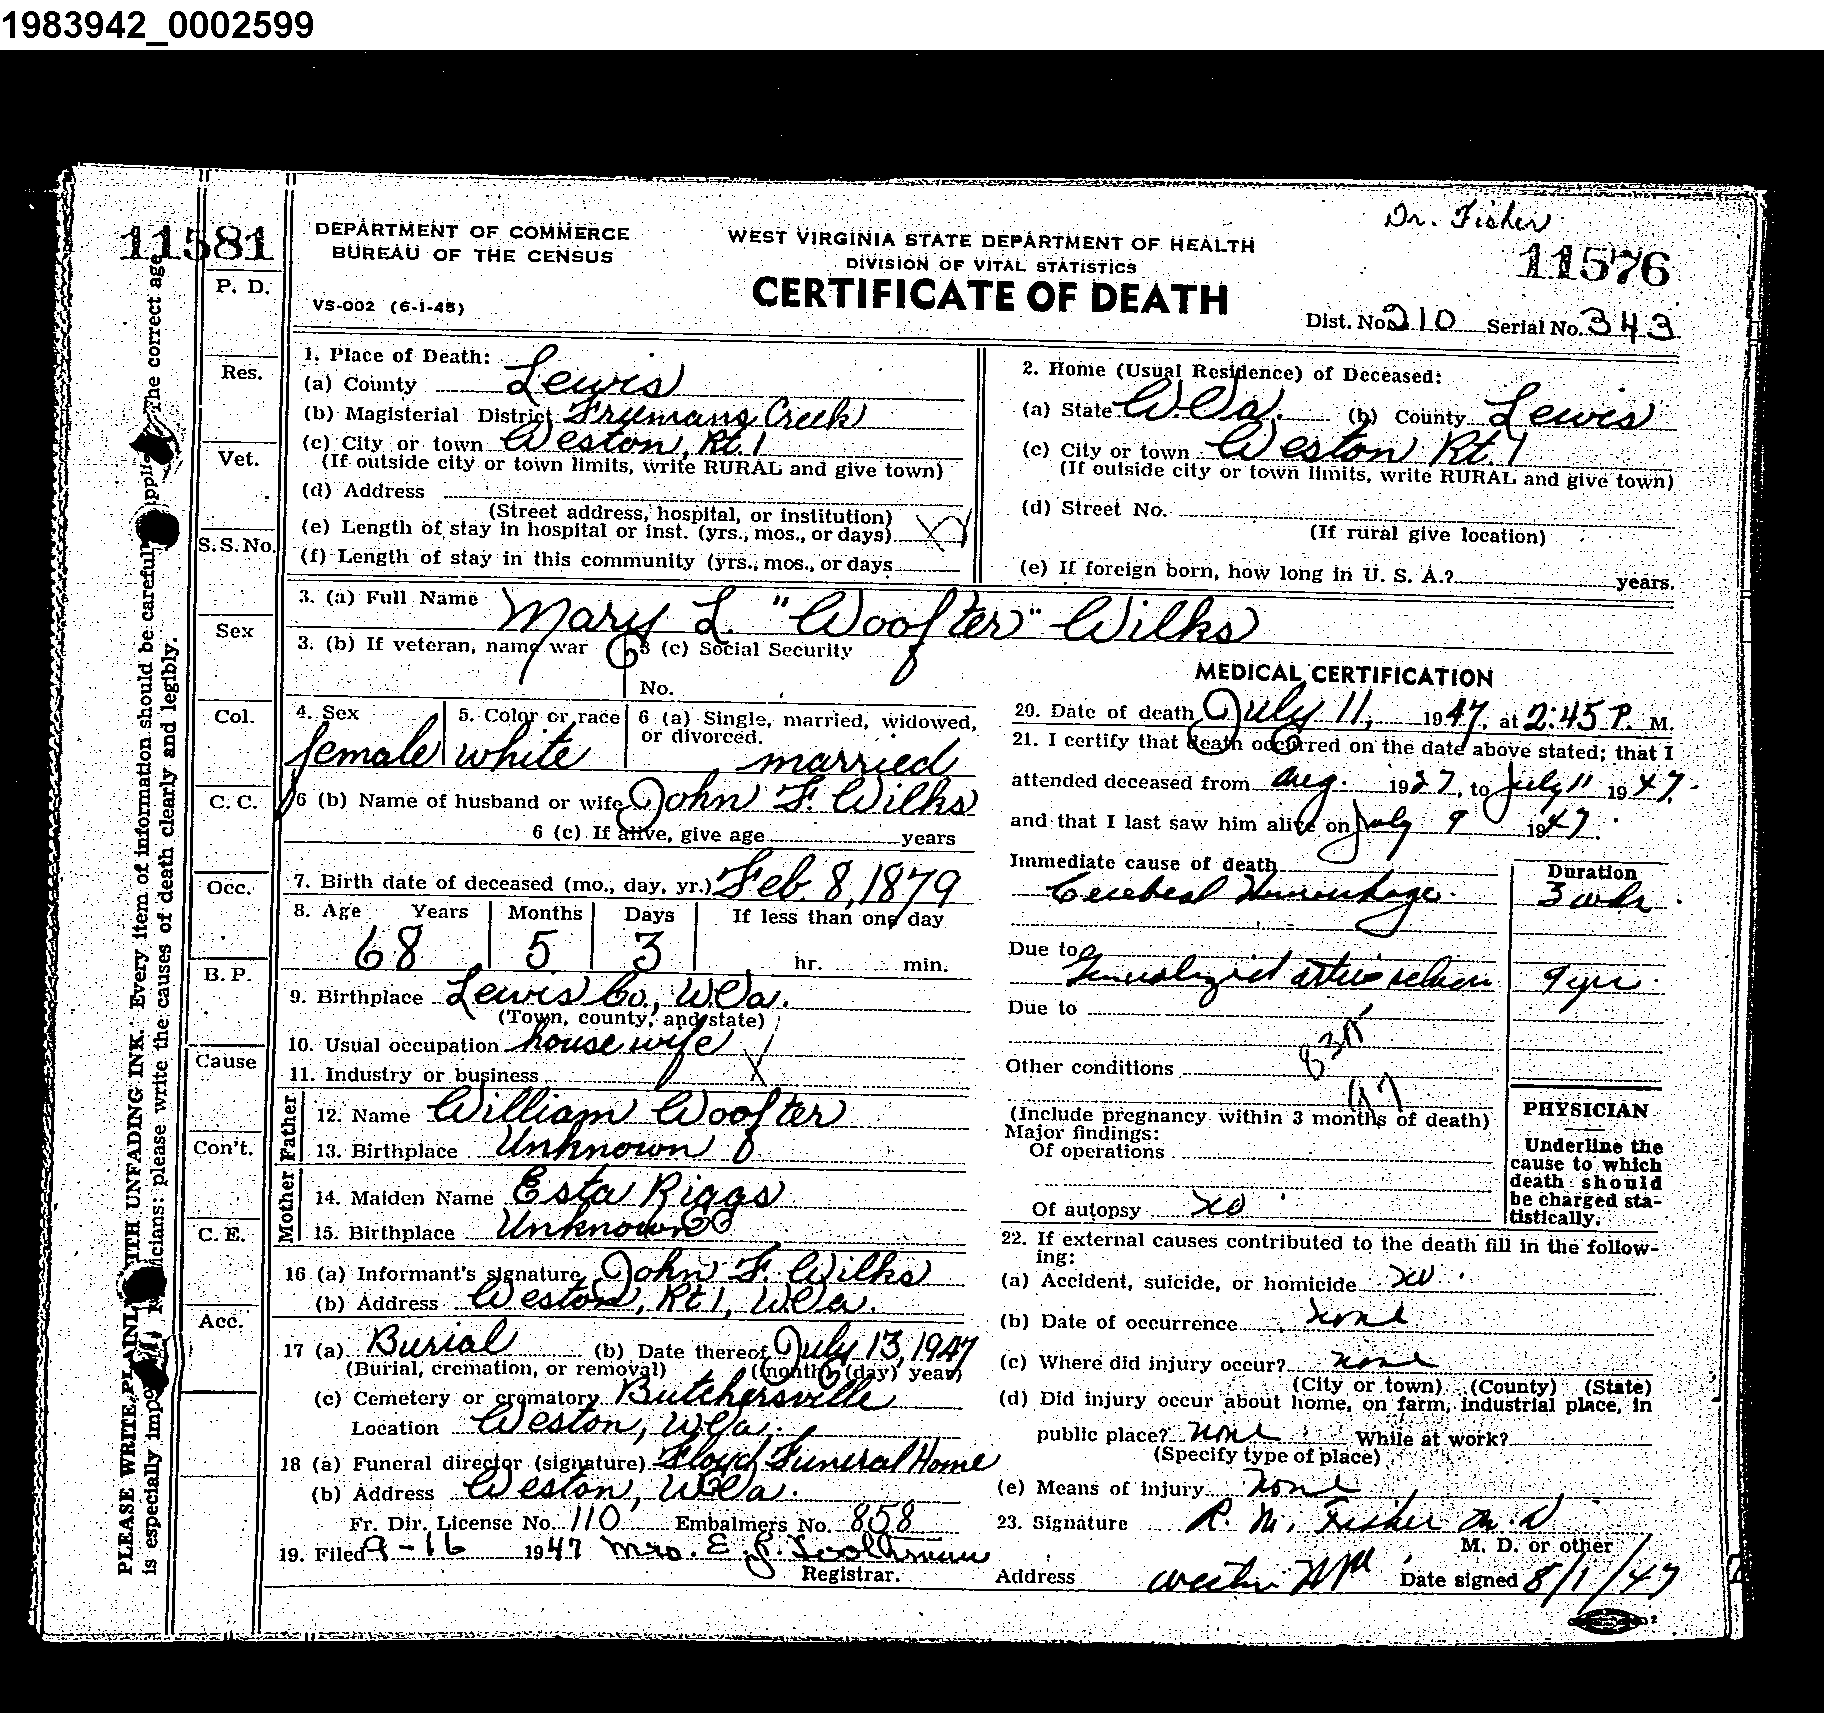 1983942_0002599
Dr. Fisher
11581
11576
DEPARTMENT OF COMMERCE
BUREAU OF THE CENSUS
VS-002 (6-1-45)
WEST VIRGINIA STATE DEPARTMENT OF HEALTH
DIVISION OF VITAL STATISTICS
CERTIFICATE OF DEATH
Dist. No. 210 Serial No. 343
PLEASE WRITE PLAINLY WITH UNFADING INK. Every item of information should be carefully supplied. The correct age
is especially important. Physicians: please write the causes of death clearly and legibly.
P. D.
Res.
Vet.
S.S.No.
Sex
Col.
C. C.
Occ.
B. P.
Cause
Con't.
C. E.
Acc.
1. Place of Death:
(a) County Lewis
(b) Magisterial District Freemans Creek
(c) City or town Weston, Rt. 1
(If outside city or town limits, write RURAL and give town)
(d) Address
(Street address, hospital, or institution)
(e) Length of stay in hospital or inst. (yrs., mos., or days)
(f) Length of stay in this community (yrs., mos., or days
2. Home (Usual Residence) of Deceased:
(a) State W Va. (b) County Lewis
(c) City or town Weston Rt. 1
(If outside city or town limits, write RURAL and give town)
(d) Street No.
(If rural give location)
(e) If foreign born, how long in U. S. A.? years.
3. (a) Full Name Mary L. "Woofter" Wilks
3. (b) If veteran, name war
3 (c) Social Security
No.
4. Sex female
5. Color or race white
6 (a) Single, married, widowed,
or divorced. married
6 (b) Name of husband or wife John F. Wilks
6 (c) If alive, give age years
7. Birth date of deceased (mo., day, yr.) Feb. 8, 1879
8. Age Years Months Days If less than one day
68 5 3 hr. min.
9. Birthplace Lewis Co., W. Va.
(Town, county, and state)
10. Usual occupation house wife
11. Industry or business
Father
12. Name William Woofter
13. Birthplace Unknown
Mother
14. Maiden Name Esta Riggs
15. Birthplace Unknown
16 (a) Informant's signature John F. Wilks
(b) Address Weston, Rt 1, W Va.
17 (a) Burial (b) Date thereof July 13, 1947
(Burial, cremation, or removal) (month) (day) year)
(c) Cemetery or crematory Butchersville
Location Weston, W Va.
18 (a) Funeral director (signature) Floyd Funeral Home
(b) Address Weston, W Va.
Fr. Dir. License No. 110 Embalmers No. 858
19. Filed 9-16 1947 Mrs. E.
Registrar.
MEDICAL CERTIFICATION
20. Date of death July 11, 1947. at 2:45 P. M.
21. I certify that death occurred on the date above stated; that I
attended deceased from Aug. 1937, to July 11 1947.
and that I last saw him alive on July 9 1947.
Immediate cause of death Duration
Cerebral Hemorrhage. 3 wks
Due to
Generalized 9 yrs.
Due to
Other conditions
(Include pregnancy within 3 months of death)
Major findings:
Of operations
Of autopsy no
PHYSICIAN
Underline the
cause to which
death should
be charged sta-
tistically.
22. If external causes contributed to the death fill in the follow-
ing:
(a) Accident, suicide, or homicide no
(b) Date of occurrence none
(c) Where did injury occur? none
(City or town) (County) (State)
(d) Did injury occur about home, on farm, industrial place, in
public place? none While at work?
(Specify type of place)
(e) Means of injury none
23. Signature R. M. Fisher M. D
M. D. or other
Address Weston Date signed 8/1/47